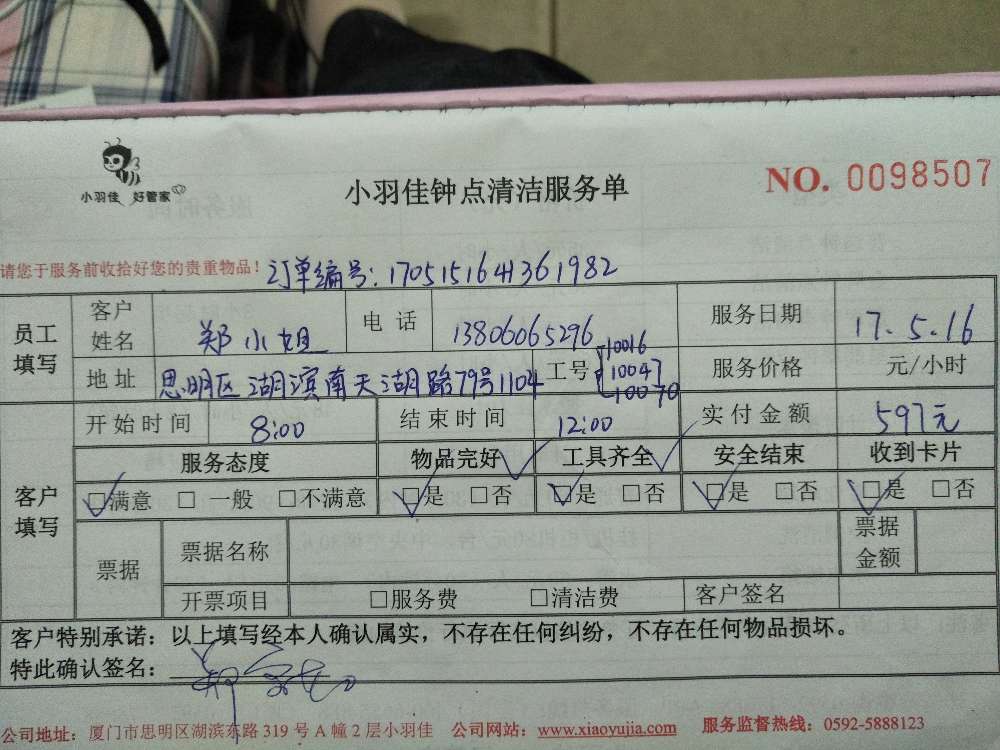 小羽佳 好管家
小羽佳钟点清洁服务单
NO. 0098507
请您于服务前收拾好您的贵重物品！
订单编号：1705151641361982
员工填写
客户姓名 郑小姐 电话 13806065296 服务日期 17.5.16
地址 思明区湖滨南天湖路79号1104 工号 10016 10047 10070 服务价格 元/小时
客户填写
开始时间 8:00 结束时间 12:00 实付金额 597元
服务态度 物品完好 工具齐全 安全结束 收到卡片
□满意 □一般 □不满意 □是 □否 □是 □否 □是 □否 □是 □否
票据 票据名称 票据金额
开票项目 □服务费 □清洁费 客户签名
客户特别承诺：以上填写经本人确认属实，不存在任何纠纷，不存在任何物品损坏。
特此确认签名：
公司地址：厦门市思明区湖滨东路319号A幢2层小羽佳 公司网站：www.xiaoyujia.com 服务监督热线：0592-5888123